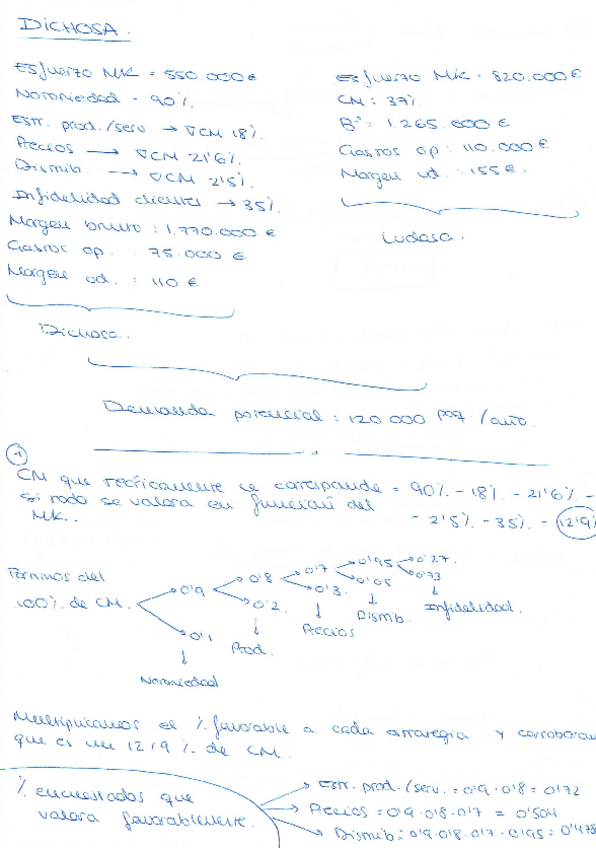 DICHOSA.
Esfuerzo MK = 550.000€
Notoriedad = 90%.
Estr. prod./serv. → ∇CM 18%.
Precios → ∇CM 21'6%.
Distrib. → ∇CM 2'5%.
Infidelidad clientes → 35%.
Margen bruto : 1.770.000 €
Gastos op. : 75.000 €
Margen ud. : 110 €
Dichosa.
Esfuerzo MK = 820.000€
CM : 37%
Bº = 1.265.000 €
Gastos op : 110.000 €
Margen ud. : 155€.
Ludasa.
Demanda potencial : 120.000 paq./año.
1
CM que teóricamente le corresponde = 90% - 18% - 21'6% -
si todo se valora en función del
MK.
- 2'5% - 35% = 12'9%
Términos del
100% de CM.
0'9
0'1
Notoriedad
0'8
0'2
Prod.
0'7
0'3
Precios
0'95
0'05
Distrib.
0'27
0'73
Infidelidad.
Multiplicamos el % favorable a cada estrategia y corroboramos
que es un 12'9 % de CM.
% encuestados que
valora favorablemente.
Estr. prod./serv. = 0'9 · 0'8 = 0'72
Precios = 0'9 · 0'8 · 0'7 = 0'504
Distrib : 0'9 · 0'8 · 0'7 · 0'95 = 0'478